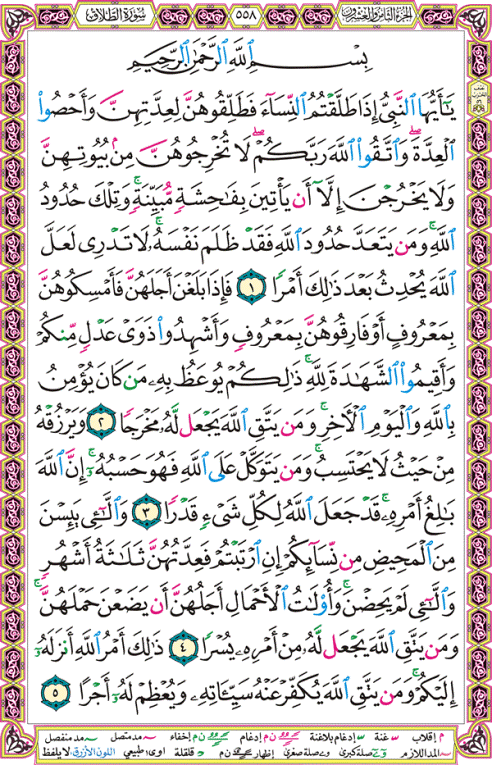 الجزء الثامن والعشرون ٥٥٨ سورة الطلاق
بِسْمِ اللَّهِ الرَّحْمَٰنِ الرَّحِيمِ
يَا أَيُّهَا النَّبِيُّ إِذَا طَلَّقْتُمُ النِّسَاءَ فَطَلِّقُوهُنَّ لِعِدَّتِهِنَّ وَأَحْصُوا
الْعِدَّةَ ۖ وَاتَّقُوا اللَّهَ رَبَّكُمْ ۖ لَا تُخْرِجُوهُنَّ مِنْ بُيُوتِهِنَّ
وَلَا يَخْرُجْنَ إِلَّا أَنْ يَأْتِينَ بِفَاحِشَةٍ مُبَيِّنَةٍ ۚ وَتِلْكَ حُدُودُ
اللَّهِ ۚ وَمَنْ يَتَعَدَّ حُدُودَ اللَّهِ فَقَدْ ظَلَمَ نَفْسَهُ ۚ لَا تَدْرِي لَعَلَّ
اللَّهَ يُحْدِثُ بَعْدَ ذَٰلِكَ أَمْرًا ١ فَإِذَا بَلَغْنَ أَجَلَهُنَّ فَأَمْسِكُوهُنَّ
بِمَعْرُوفٍ أَوْ فَارِقُوهُنَّ بِمَعْرُوفٍ وَأَشْهِدُوا ذَوَيْ عَدْلٍ مِنْكُمْ
وَأَقِيمُوا الشَّهَادَةَ لِلَّهِ ۚ ذَٰلِكُمْ يُوعَظُ بِهِ مَنْ كَانَ يُؤْمِنُ
بِاللَّهِ وَالْيَوْمِ الْآخِرِ ۚ وَمَنْ يَتَّقِ اللَّهَ يَجْعَلْ لَهُ مَخْرَجًا ٢ وَيَرْزُقْهُ
مِنْ حَيْثُ لَا يَحْتَسِبُ ۚ وَمَنْ يَتَوَكَّلْ عَلَى اللَّهِ فَهُوَ حَسْبُهُ ۚ إِنَّ اللَّهَ
بَالِغُ أَمْرِهِ ۚ قَدْ جَعَلَ اللَّهُ لِكُلِّ شَيْءٍ قَدْرًا ٣ وَاللَّائِي يَئِسْنَ
مِنَ الْمَحِيضِ مِنْ نِسَائِكُمْ إِنِ ارْتَبْتُمْ فَعِدَّتُهُنَّ ثَلَاثَةُ أَشْهُرٍ
وَاللَّائِي لَمْ يَحِضْنَ ۚ وَأُولَاتُ الْأَحْمَالِ أَجَلُهُنَّ أَنْ يَضَعْنَ حَمْلَهُنَّ ۚ
وَمَنْ يَتَّقِ اللَّهَ يَجْعَلْ لَهُ مِنْ أَمْرِهِ يُسْرًا ٤ ذَٰلِكَ أَمْرُ اللَّهِ أَنْزَلَهُ
إِلَيْكُمْ ۚ وَمَنْ يَتَّقِ اللَّهَ يُكَفِّرْ عَنْهُ سَيِّئَاتِهِ وَيُعْظِمْ لَهُ أَجْرًا ٥
م إقلاب س غنة إدغام بلاغنة ن م إدغام ن م إخفاء مد متصل مد منفصل
المد اللازم صلة كبرى وصلة صغرى إظهار قلقلة اوى: طبيعي اللون الأزرق: لا يلفظ